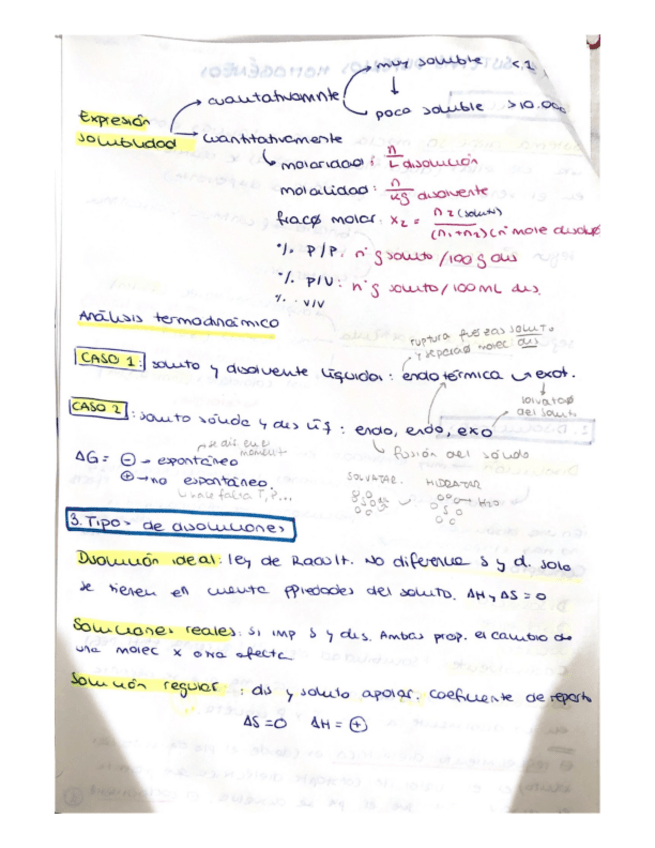 muy soluble <1
cualitativamente
poco soluble >10.000
Expresión
solubilidad
cuantitativamente
molaridad: n / L disolución
molalidad: n / kg disolvente
fracø molar: X2 = n2 (soluto) / (n1+n2) (nº mole disoluø
% P/P: nº g soluto /100 g dis
% P/V: nº g soluto /100 mL dis.
% V/V
Análisis termodinámico
ruptura fuerzas soluto
y separaø molec dis
CASO 1: soluto y disolvente líquido: endotérmica exot.
solvataø
del soluto
CASO 2: soluto sólido y dis líq: endo, endo, exo
se dis. en el
momento
fusión del sólido
ΔG = ⊖ → espontáneo
⊕ → no espontáneo.
hace falta T, P...
SOLVATAR. HIDRATAR
H2O
3. Tipos de disoluciones
Disolución ideal: ley de Raoult. No diferencia s y d. solo
se tienen en cuenta ppiedades del soluto. ΔH y ΔS = 0
Soluciones reales: si imp s y dis. Ambas prop. el cambio de
una molec x otra afecta
Solución regular: dis y soluto apolar. Coeficiente de reparto
ΔS = 0 ΔH = ⊕